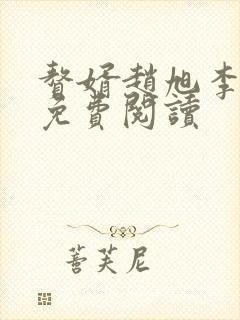 贅婿趙旭李
免費閱讀
蓍芙尼